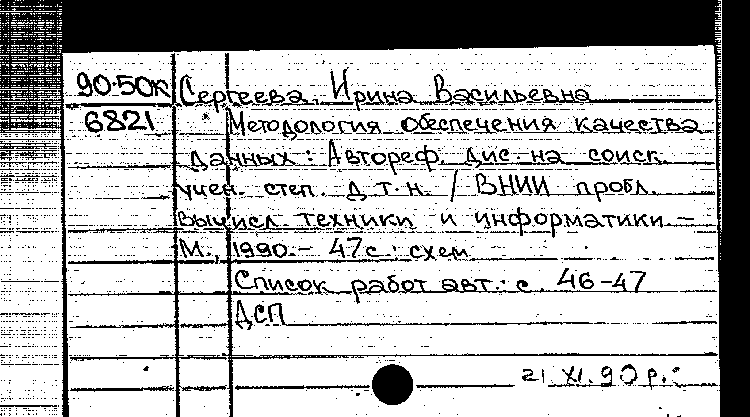 90-50К Сергеева, Ирина Васильевна
6821 Методология обеспечения качества
данных : Автореф. дис. на соиск.
учен. степ. д.т.н. / ВНИИ пробл.
вычисл. техники и информатики. –
М., 1990. – 47 с : схем
Список работ авт.: с. 46-47
ДСП
21.XI.90 р.